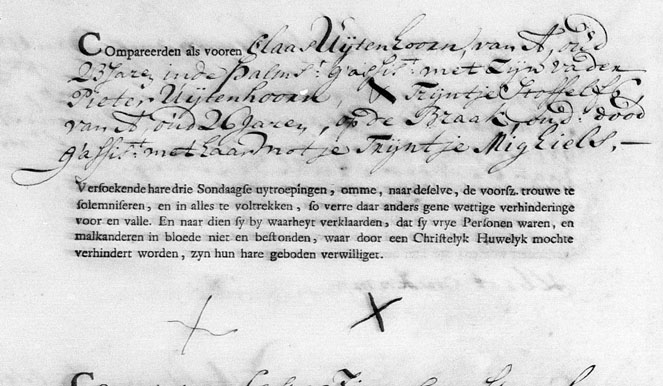 Compareerden als vooren Claas Uÿtenhoorn, van A, oud
23 Jare, in de Palmst: g'assist: met zijn vader
Pieter Uÿtenhoorn, & Trÿntje Stoffels
van A, oud 26 Jaren, op de Braak, oud: dood
g'assist: met haar notje Trÿntje Mighiels, —
Versoekende hare drie Sondaagse uytroepingen, omme, naar deselve, de voorsz. trouwe te
solemniseren, en in alles te voltrekken, so verre daar anders gene wettige verhinderinge
voor en valle. En naar dien sy by waarheyt verklaarden, dat sy vrye Personen waren, en
malkanderen in bloede niet en bestonden, waar door een Christelyk Huwelyk mochte
verhindert worden, zyn hun hare geboden verwilliget.